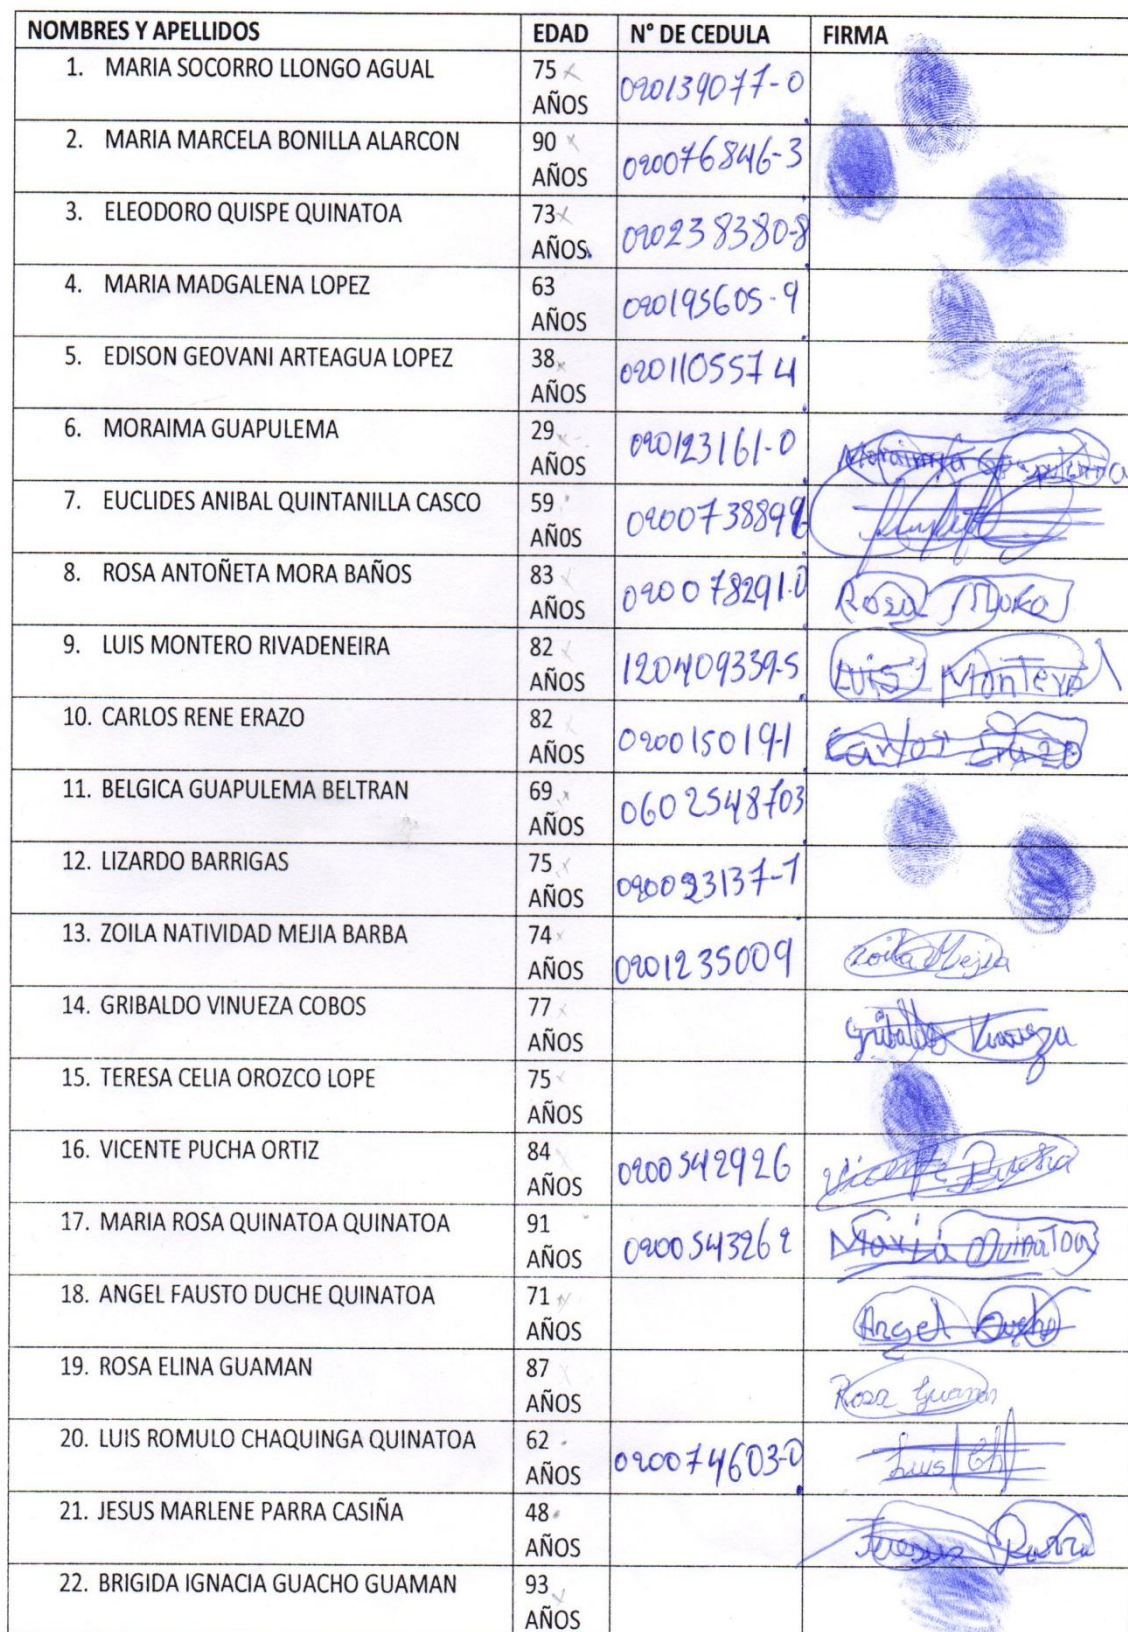 NOMBRES Y APELLIDOS EDAD N° DE CEDULA FIRMA
1. MARIA SOCORRO LLONGO AGUAL 75 AÑOS 020139077-0
2. MARIA MARCELA BONILLA ALARCON 90 AÑOS 020076846-3
3. ELEODORO QUISPE QUINATOA 73 AÑOS 020238380-8
4. MARIA MADGALENA LOPEZ 63 AÑOS 020195605-9
5. EDISON GEOVANI ARTEAGUA LOPEZ 38 AÑOS 0201105574
6. MORAIMA GUAPULEMA 29 AÑOS 020123161-0 Moraima Guapulema
7. EUCLIDES ANIBAL QUINTANILLA CASCO 59 AÑOS
8. ROSA ANTOÑETA MORA BAÑOS 83 AÑOS 020078291-0 Rosa Mora
9. LUIS MONTERO RIVADENEIRA 82 AÑOS 120409339-5 LUIS Montero
10. CARLOS RENE ERAZO 82 AÑOS 020015019-1 Carlos Erazo
11. BELGICA GUAPULEMA BELTRAN 69 AÑOS 0602548703
12. LIZARDO BARRIGAS 75 AÑOS
13. ZOILA NATIVIDAD MEJIA BARBA 74 AÑOS 0201235009 Zoila Mejia
14. GRIBALDO VINUEZA COBOS 77 AÑOS Gribaldo Vinueza
15. TERESA CELIA OROZCO LOPE 75 AÑOS
16. VICENTE PUCHA ORTIZ 84 AÑOS 0200542926 Vicente Pucha
17. MARIA ROSA QUINATOA QUINATOA 91 AÑOS 0200543262 Maria Quinatoa
18. ANGEL FAUSTO DUCHE QUINATOA 71 AÑOS Angel Duche
19. ROSA ELINA GUAMAN 87 AÑOS Rosa Guaman
20. LUIS ROMULO CHAQUINGA QUINATOA 62 AÑOS 020074603-0 Luis Ch
21. JESUS MARLENE PARRA CASIÑA 48 AÑOS Parra
22. BRIGIDA IGNACIA GUACHO GUAMAN 93 AÑOS